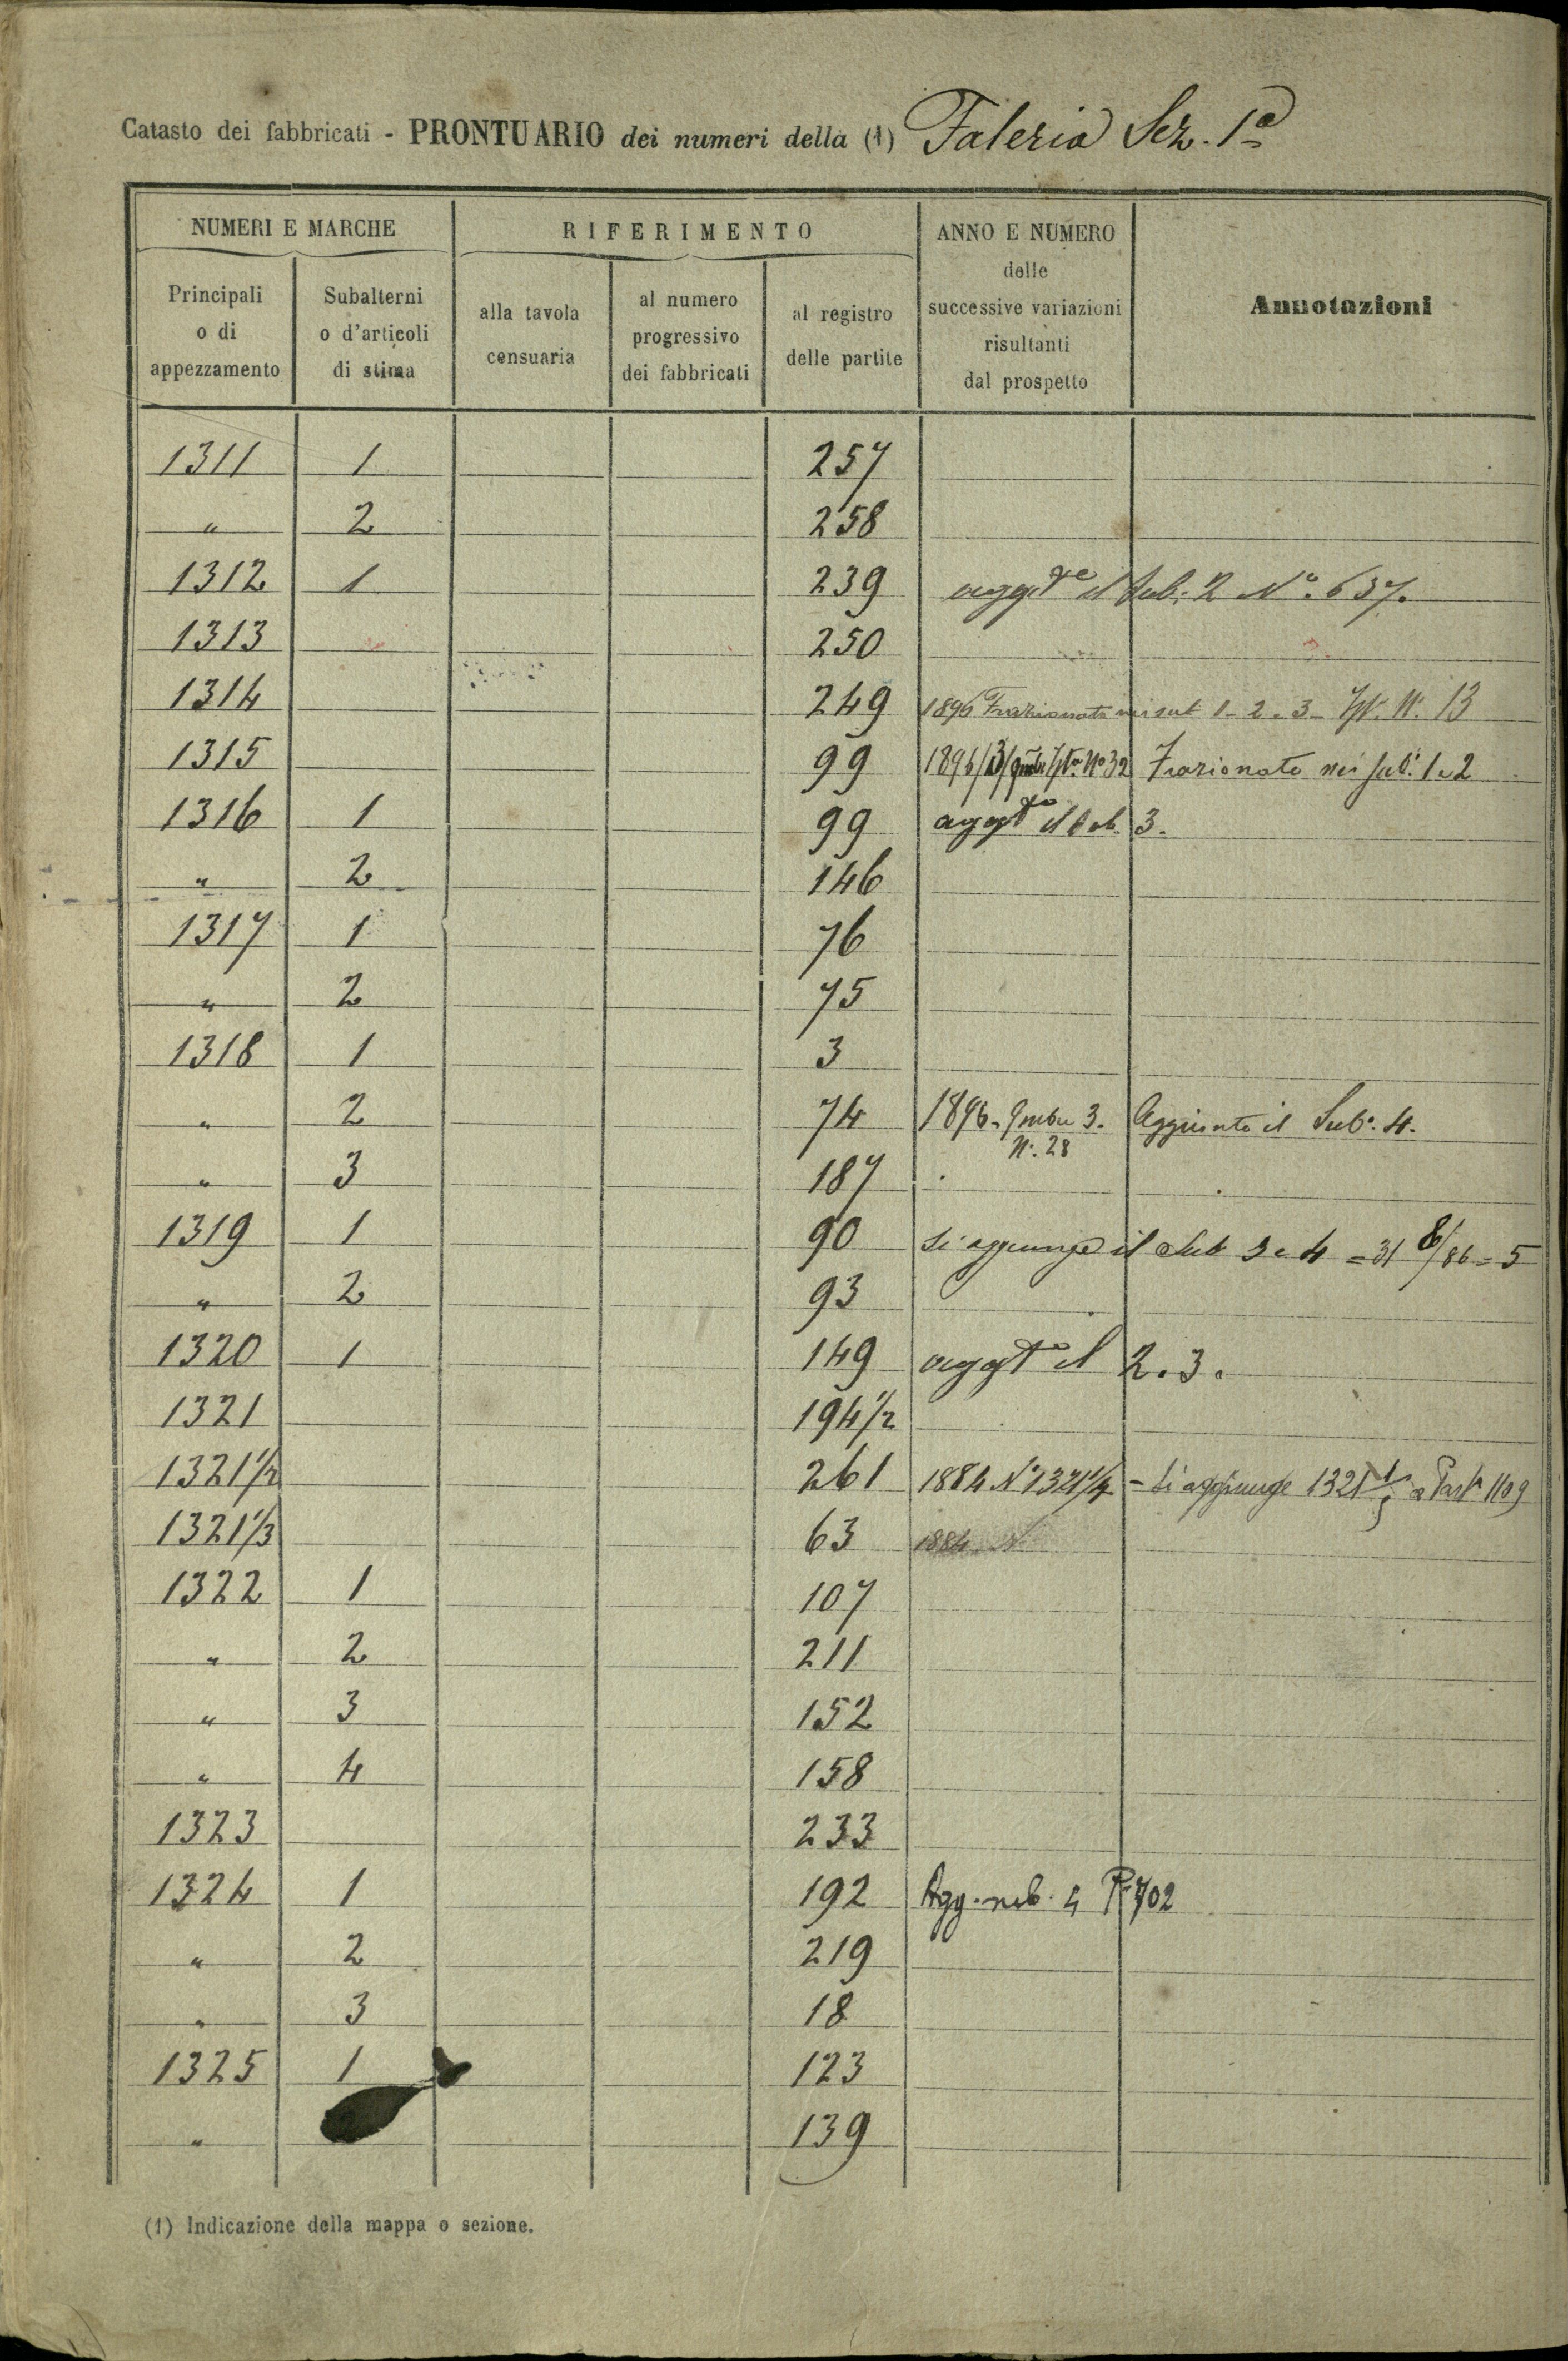 Catasto dei fabbricati - PRONTUARIO dei numeri della (1) Faleria Sez. 1a
NUMERI E MARCHE
RIFERIMENTO
ANNO E NUMERO
delle
successive variazioni
risultanti
dal prospetto
Annotazioni
Principali
o di
appezzamento
Subalterni
o d'articoli
di stima
alla tavola
censuaria
al numero
progressivo
dei fabbricati
al registro
delle partite
1311 1 257
" 2 258
1312 1 239 aggte il sub. 2 No. 637.
1313 250
1314 249 1896 Frazionato nei sub 1-2.3- N. 13
1315 99 1896 No 32 Frazionato nei sub. 1 e 2
1316 1 99 aggto il sub. 3.
" 2 146
1317 1 76
" 2 75
1318 1 3
" 2 74 1896. 9mbre 3. Aggiunto il Sub. 4.
N. 28
" 3 187
1319 1 90 si aggiunge il Sub 3 e 4 = 31 8/86 = 5
" 2 93
1320 1 149 aggto il 2.3.
1321 194 1/2
1321 1/2 261 1884 No 1321 1/4 - Si aggiunge 1321 a Part 1109
1321 1/3 63 1884 N
1322 1 107
" 2 211
" 3 152
" 4 158
1323 233
1324 1 192 Agg. sub. 4 P. 702
" 2 219
" 3 18
1325 1 123
" 139
(1) Indicazione della mappa o sezione.